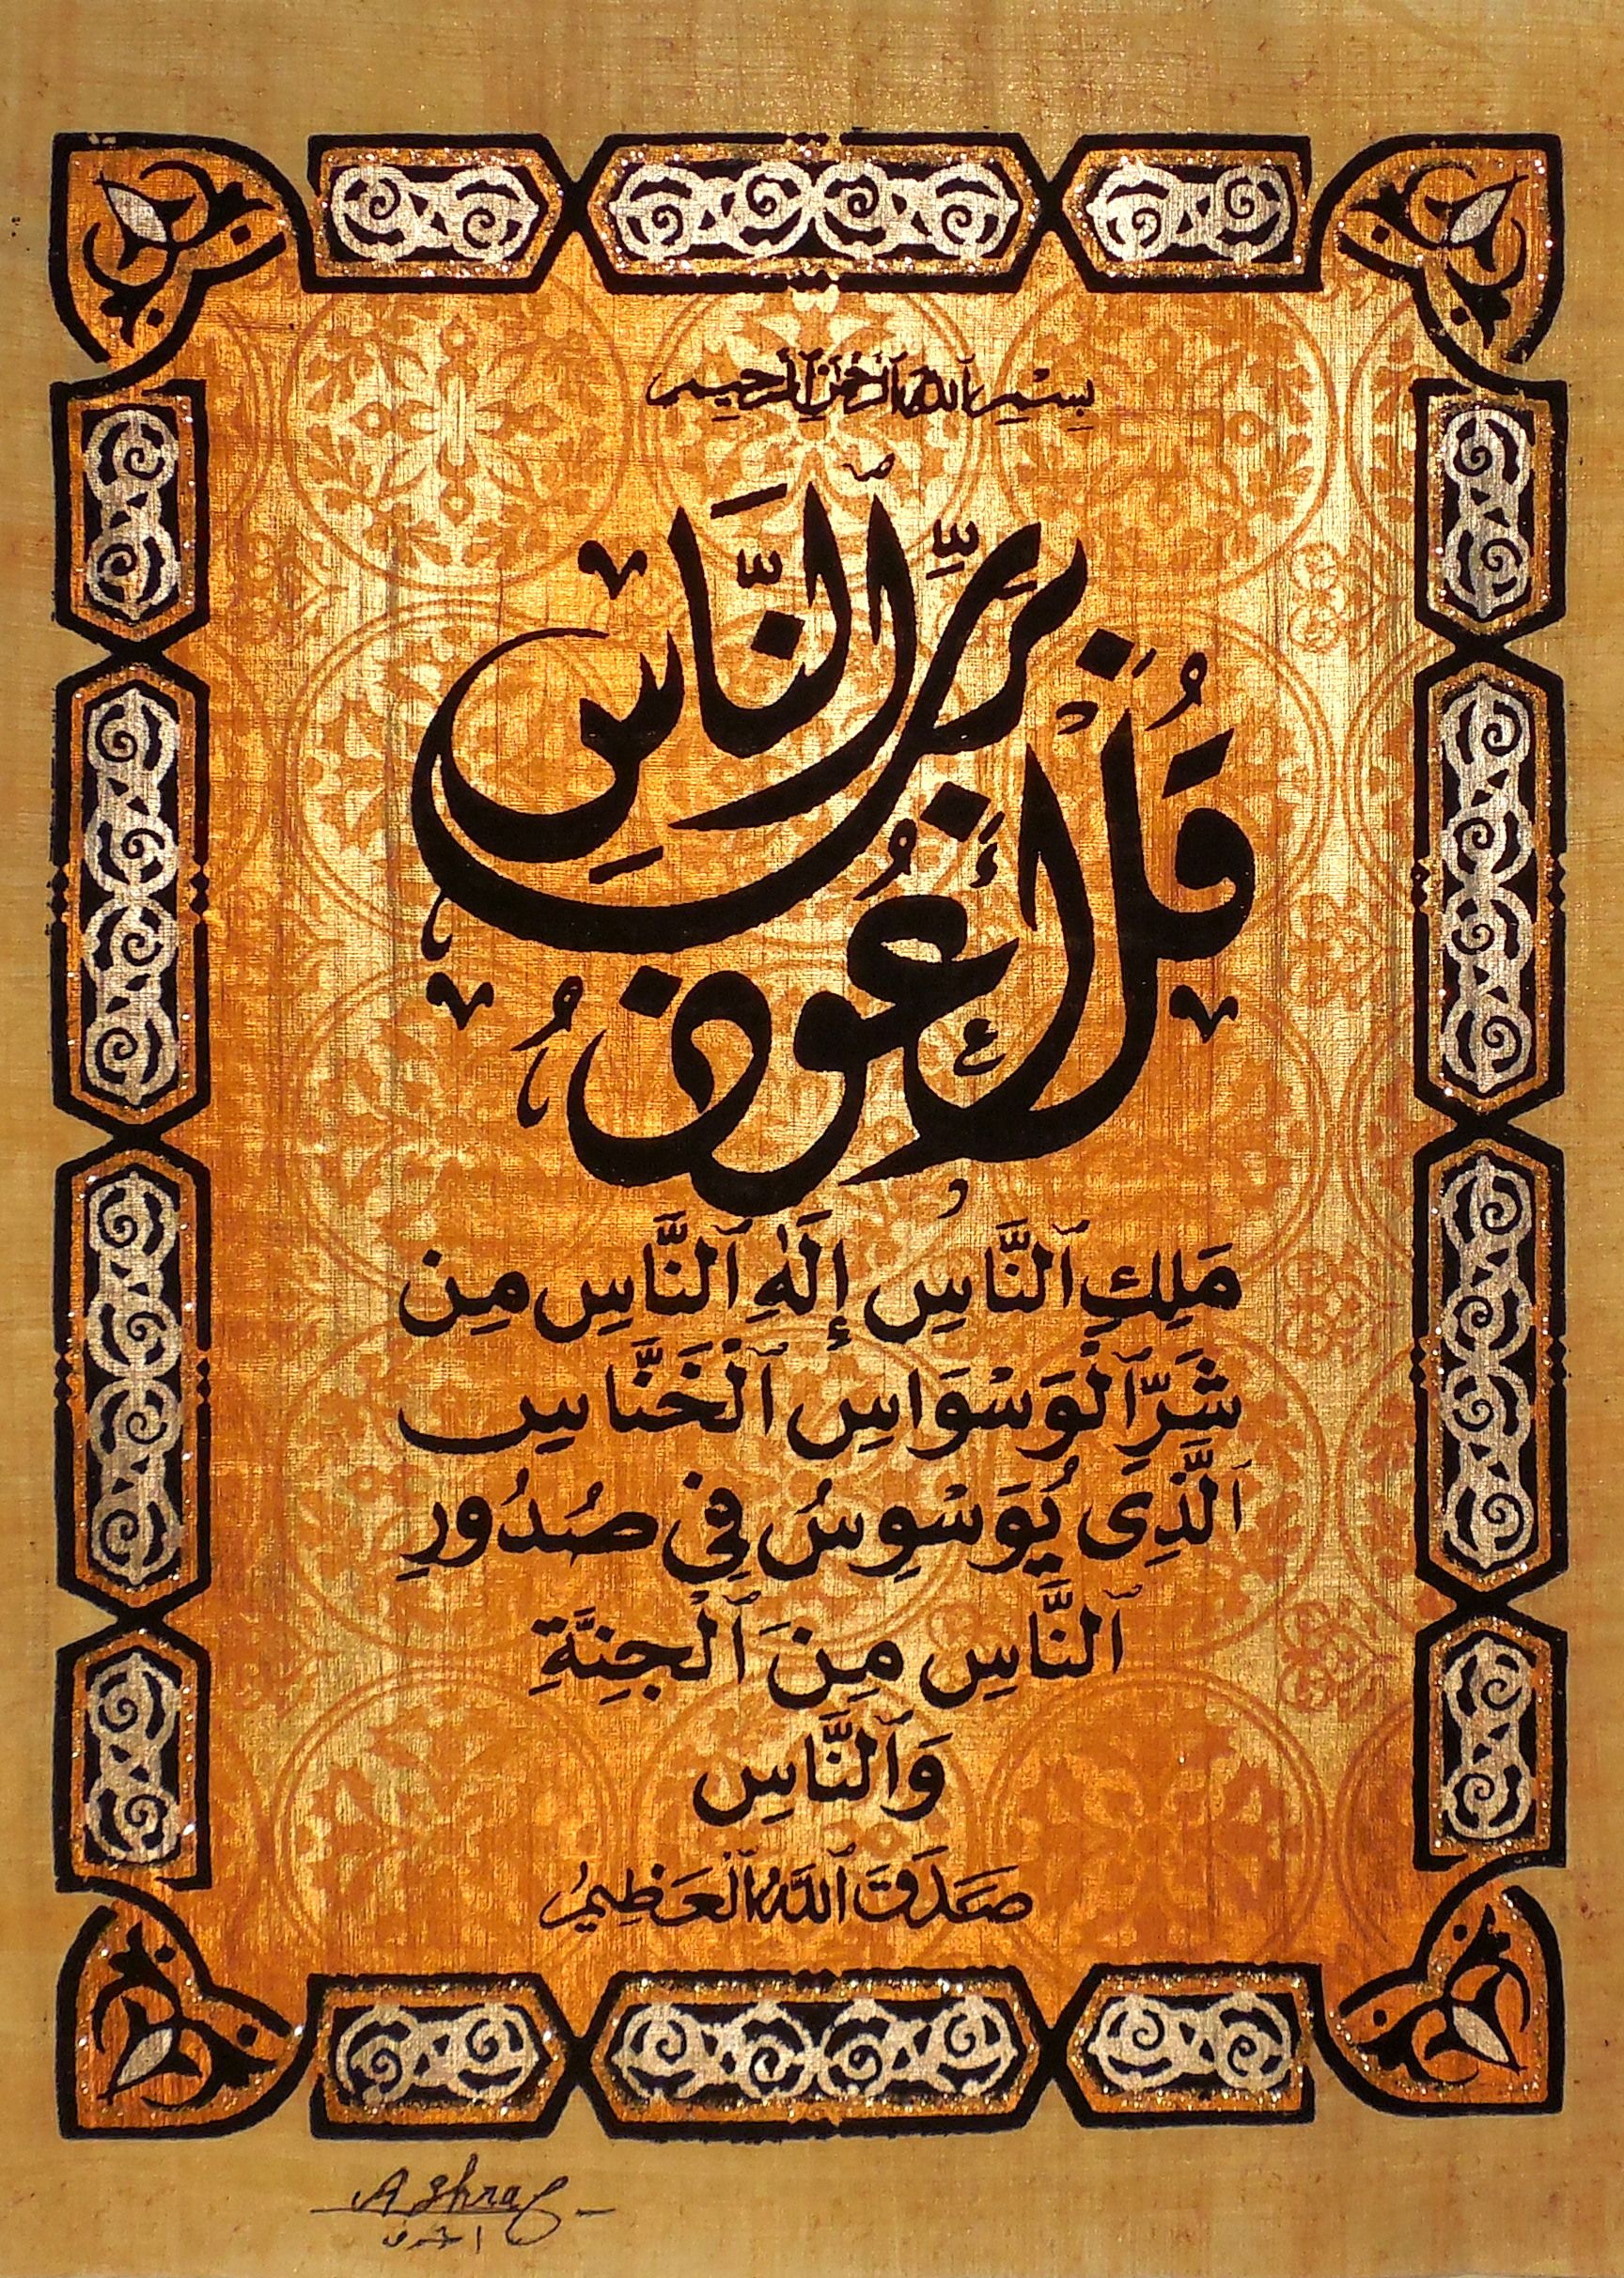 بِسْمِ ٱللَّهِ ٱلرَّحْمَٰنِ ٱلرَّحِيمِ
قُلْ أَعُوذُ بِرَبِّ ٱلنَّاسِ
مَلِكِ ٱلنَّاسِ إِلَٰهِ ٱلنَّاسِ مِن
شَرِّ ٱلْوَسْوَاسِ ٱلْخَنَّاسِ
ٱلَّذِى يُوَسْوِسُ فِى صُدُورِ
ٱلنَّاسِ مِنَ ٱلْجِنَّةِ
وَٱلنَّاسِ
صَدَقَ ٱللَّهُ ٱلْعَظِيمُ
Ashraf
اشرف